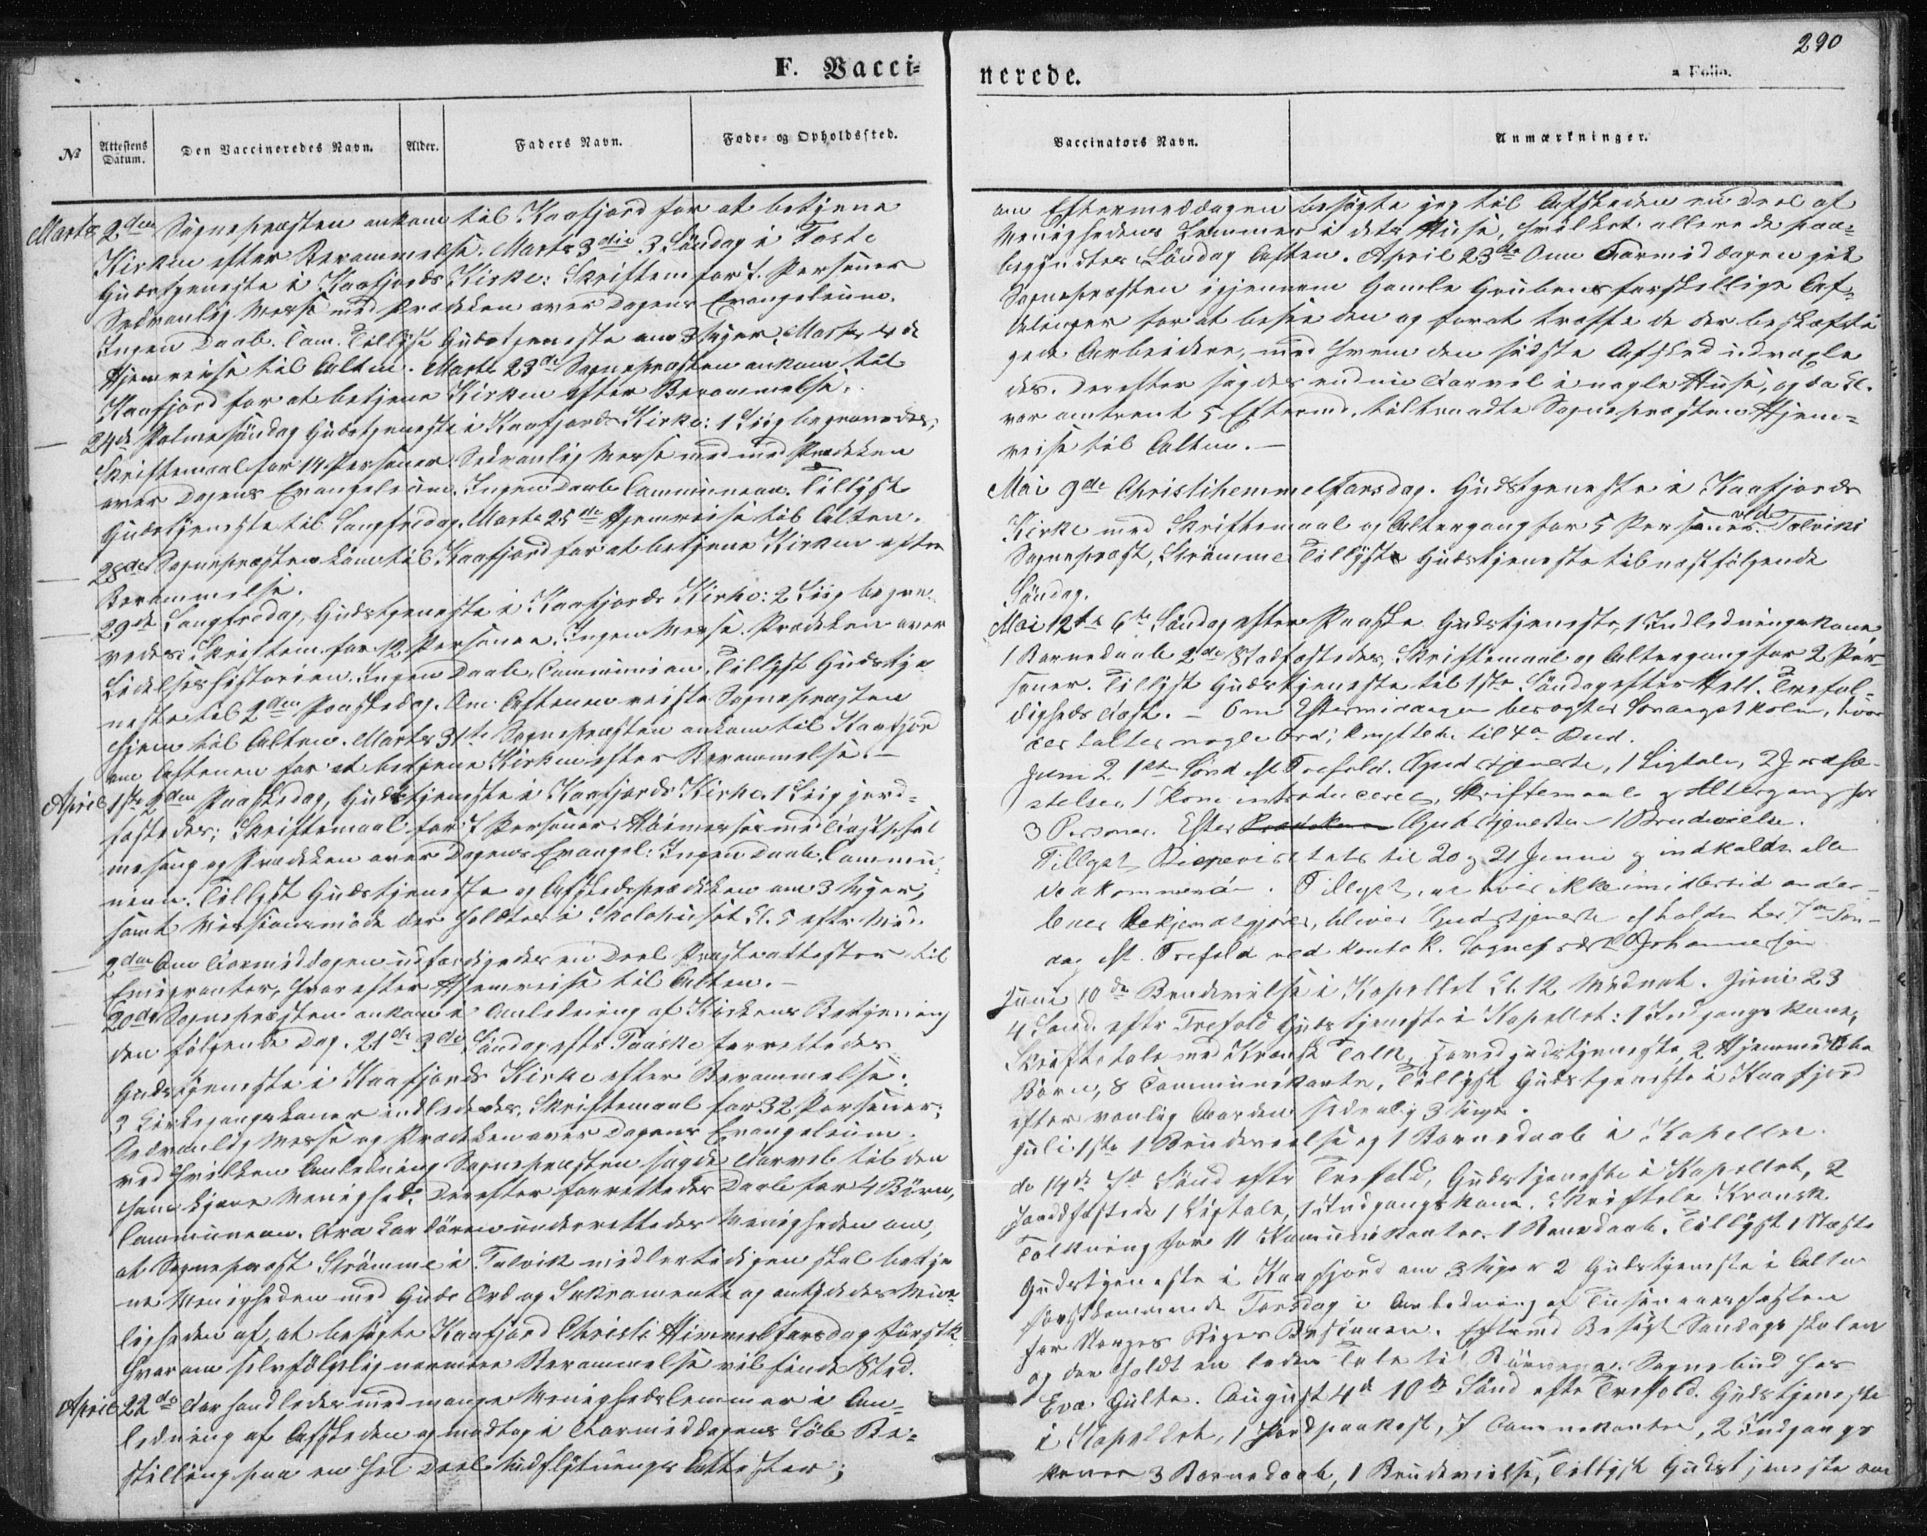 290
F. Vacci=
nerede.
Folio.
No
Attestens Datum.
Den Vaccineredes Navn.
Alder.
Faders Navn.
Føde- og Opholdssted.
Vaccinators Navn.
Anmærkninger.
Marts 2den Sognepræsten ankom til Kaafjord for at betjene
Kirken efter Berammelse. Marts 3die 3 Søndag i Faste
Gudstjeneste i Kaafjords Kirke: Skriftem for 7 Personer
Sedvanlig Messe med Prædiken over Dagens Evangelium.
Ingen Daab. Com. Tillyst Gudstjeneste om 3 Uger. Marts 4de
Hjemreise til Alten. Marts 23de Sognepræsten ankom til
Kaafjord for at betjene Kirken efter Berammelse.
24de Palmesøndag Gudstjeneste i Kaafjords Kirke: 1 Liig begravedes,
Skriftemaal for 14 Personer. Sedvanlig Messe med Prædiken
over Dagens Evangelium. Ingen Daab. Communion. Tillyst
Gudstjeneste til Langfredag. Marts 25de Hjemreise til Alten.
28de Sognepræsten kom til Kaafjord for at betjene Kirken efter
Berammelse.
29de Langfredag, Gudstjeneste i Kaafjords Kirke: 2 Liig begra-
vedes: Skriftem for 12 Personer. Ingen Messe. Prædiken over
Lidelseshistorien. Ingen Daab. Communion. Tillyst Gudstje
neste til 2den Paaskedag. Om Aftenen reiste Sognepræsten
hjem til Alten. Marts 31te Sognepræsten ankom til Kaafjord
om Aftenen for at betjene Kirken efter Berammelse. —
April 1ste 2den Paaskedag, Gudstjeneste i Kaafjords Kirke. 1 Liig jord-
fæstedes; Skriftemaal for 7 Personer. Høimesse med
og Prædiken over Dagens Evangel: Ingen Daab. Commu-
nion. Tillyst Gudstjeneste og Afskedsprædiken om 3 Uger,
samt Missionsmøde der holdtes i Skolehuset Kl. 5 efter Mid.
2den Om Formiddagen udfærdigedes en Deel Præsteattester til
Emigranter, hvorefter Hjemreise til Alten. —
20de Sognepræsten ankom i Anledning af Kirkens Betjening
den følgende Dag. 21de 3die Søndag efter Paaske forrettedes
Gudstjeneste i Kaafjords Kirke efter Berammelse:
3 Kirkegangskoner indlededes, Skriftemaal for 32 Personer,
Sedvanlig Messe og Prædiken over Dagens Evangelium
ved hvilken Anledning Sognepræsten sagde Farvel til den
ham kjære Menighed: Derefter forrettedes Daab for 4 Børn,
Communion. Fra Kordøren underrettedes Menigheden om,
at Sognepræst Strømme i Talvik midlertidigen skal betje
ne Menigheden med Guds Ord og Sakramente og antydedes Mue-
ligheden af, at besøgte Kaafjord Christi Himmelfarsdag førstk.
hvorom selvfølgelig nærmere Berammelse vil finde Sted.
April 22de Forhandledes med mange Menighedslemmer i An-
ledning af Afskeden og modtog i Formiddagens Løb Be-
stilling paa en hel Deel Udflytnings Attester;
om Eftermeddagen besøgte jeg til Afskeden en deel af
Menighedens Lemmer i dets Huse, hvilket allerede paa-
begyndtes Søndag Aften. April 23de Om Formiddagen gik
Sognepræsten igjennem Gamle Grubens forskellige Af-
delinger for at besee den og for at træffe de der beskæfti
gede Arbeidere, med hvem den sidste Afsked udvexle
des. Derefter sagdes endnu Farvel i nogle Huse, og da Kl.
var omtrent 5 Efterm. tiltraadte Sognepræsten Hjem-
reise til Alten. —
Mai 9de Christihemmelfarsdag. Gudstjeneste i Kaafjords
Kirke med Skriftemaal og Altergang for 5 Personer. ved Talviks
Sognepræst, Strømme Tillyste Gudstjeneste til næstfølgende
Søndag.
Mai 12te 6te Søndag efter Paaske Gudstjeneste, 1 Indledningskone
1 Barnedaab 2de Stadfæstedes, Skriftemaal og Altergang for 2 Per-
soner. Tillyst Gudstjeneste til 1ste Søndag efter Hell. Trefol-
digheds Fest. — Om Eftermiddagen besøgtes Søndagsskolen, hvor
der taltes nogle Ord, knyttede til 4de Bud.
Juni 2. 1ste Sønd eft Trefold. Gudstjeneste, 1 Ligtale, 2 Jordfæ-
stelser, 1 Kone introduceres, Skriftemaal og Altergang for
3 Personer. Efter Gudstjenesten 1 Brudevielse.
Tillyst Bispevisitats til 20 og 21 Juni og indkaldte alle
Tillyst, at hvis ikke imidlertid ander-
ledes bekjendtgjøres, bliver Gudstjeneste afholden her 7de Søn-
dag eft. Trefold ved Const. K. Sognepræst Johannessen
Juni 10de Brudevielse i Kapellet Kl. 12 Midnat. Juni 23
4 Sønd. efter Trefold Gudstjeneste i Kapellet: 1 Indgangskone,
Skriftetale med Kvænsk Tolk, 2 Hjemmedøbte
Børn, 8 Communikanter, Tillyst Gudstjeneste i Kaafjord
efter vanlig Orden sedvanlig 3 Uger.
Juli 1ste 1 Brudevielse og 1 Barnedaab i Kapellet.
do 14de 7de Sønd efter Trefold, Gudstjeneste i Kapellet, 2
Jordfæstede 1 Ligtale, 1 Indgangskone. Skriftetale Kvænsk
Tolkning for 11 Kommunikanter 1 Barnedaab. Tillyst 1 Næste
Gudstjeneste i Kaafjord om 3 Uger 2 Gudstjeneste i Alten
førstkommende Torsdag i Anledning af Tusenaarsfesten
for Norges Riges Bestaaen. Efterm Besøgt Søndagsskolen
og der holdt en liden Tale til Børnene. Sognebud hos
Eva Hulta. August 4de 10de Sønd efter Trefold. Gudstjeneste
i Kapellet, 1 Jordpaakast, 7 Communikanter, 2 Indgangs
koner 3 Barnedaab, 1 Brudevielse, Tillyst Gudstjeneste om